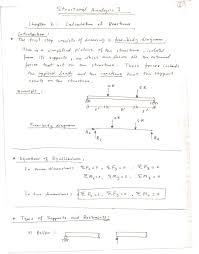 Structural Analysis I
Chapter 2: Calculation of Reactions
Introduction:
* The first step consists of drawing a free-body diagram.
This is a simplified picture of the structure, isolated
from its supports, on which are shown all the external
forces that act on the structure. These forces include
the applied loads and the reactions that this support
exerts on the structure.
Example:
Free-body diagram
* Equations of Equilibrium:
In three dimensions:
In two dimensions:
* Types of Supports and Restraints:
a) Roller: